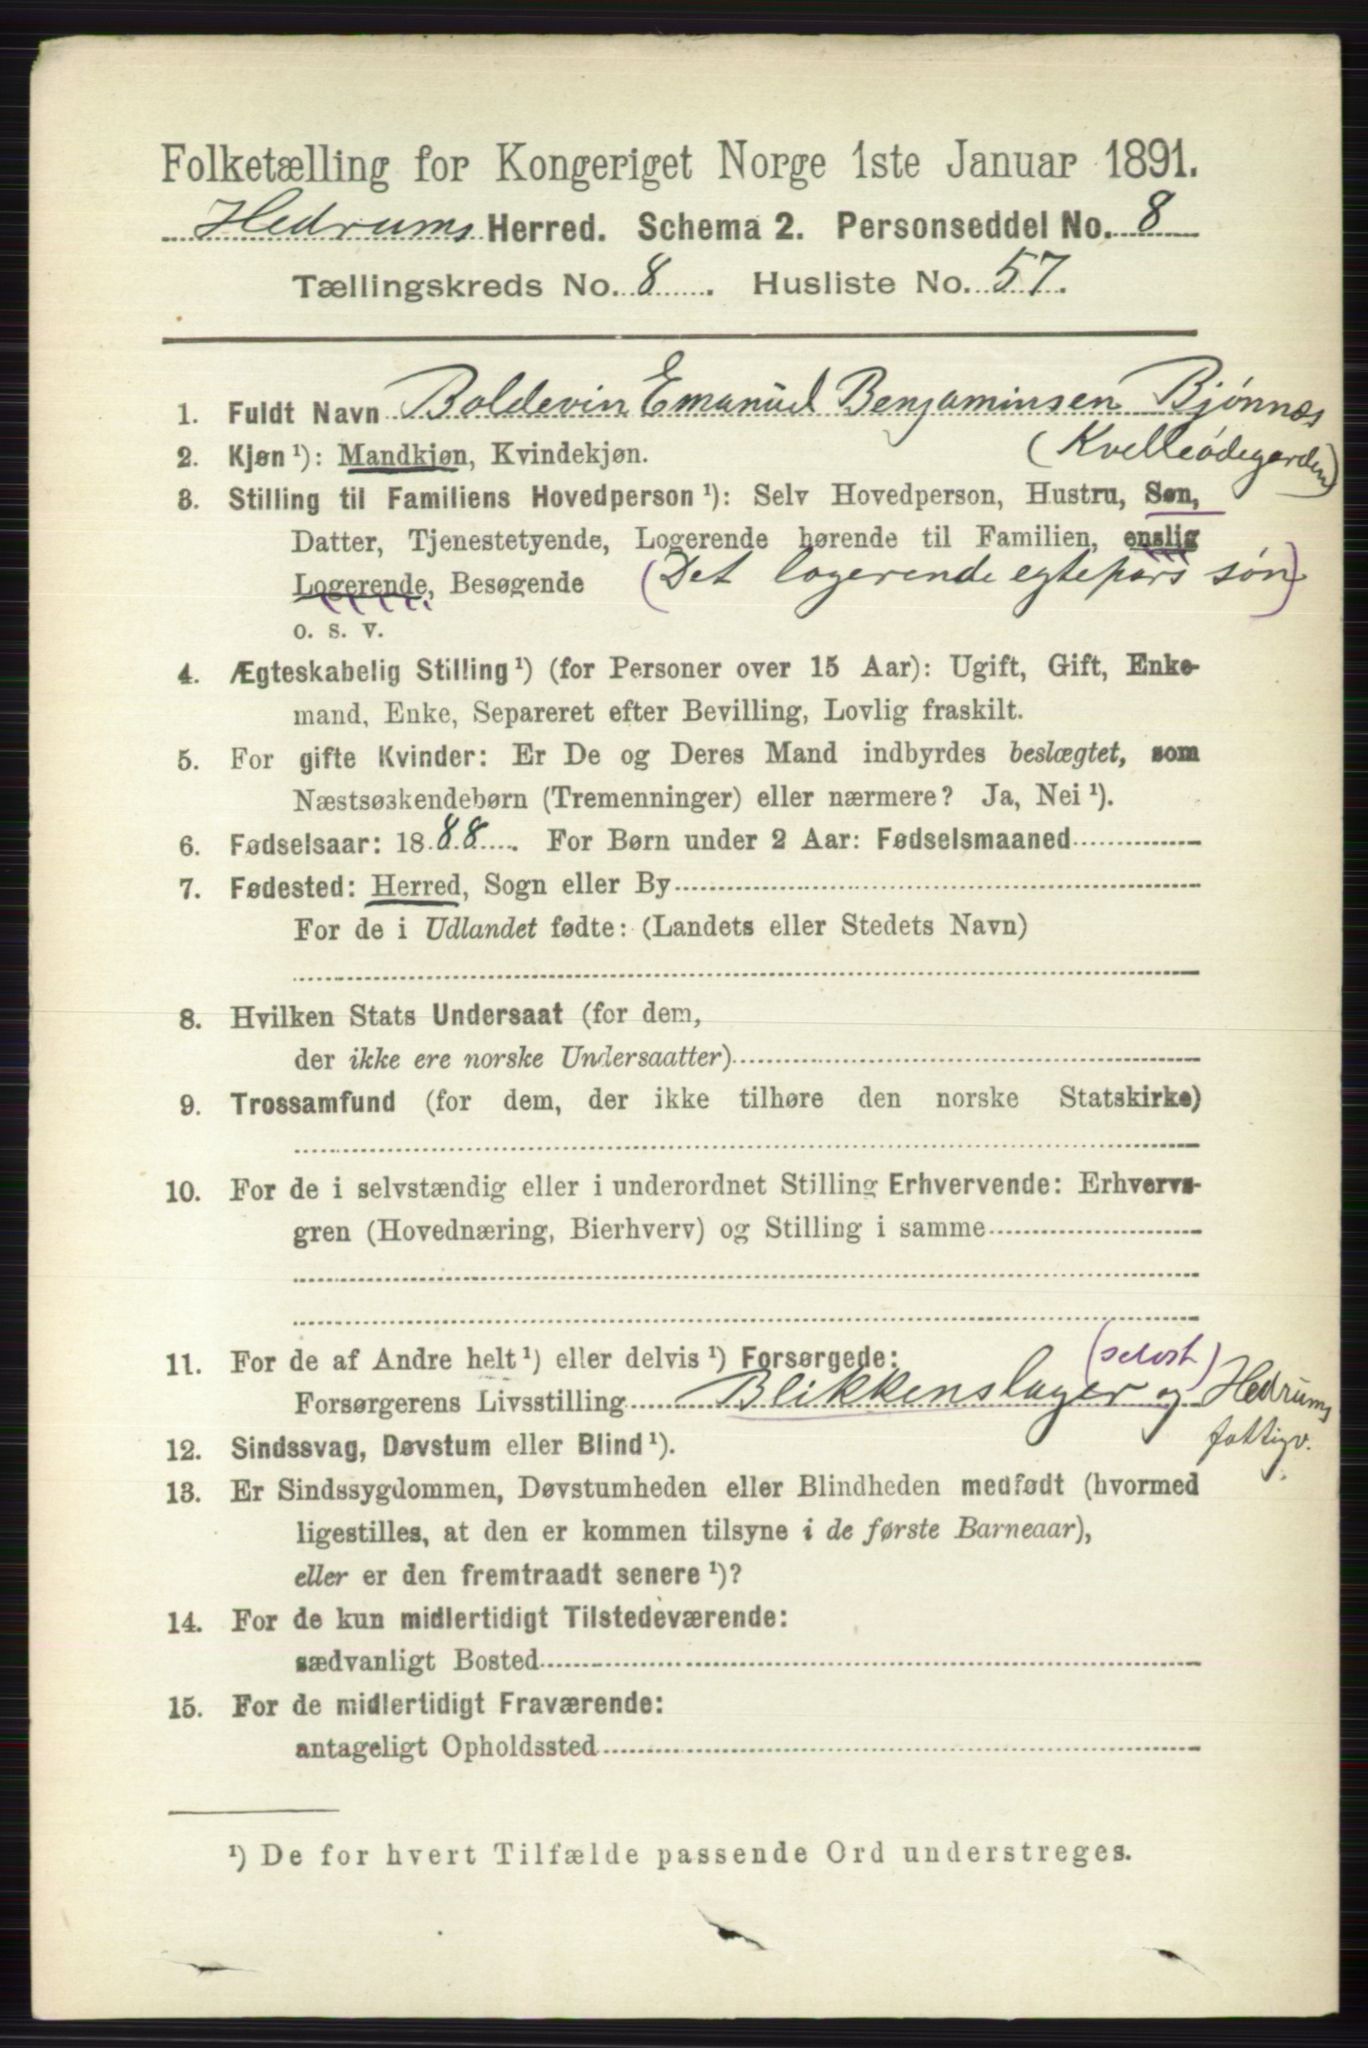 Folketælling for Kongeriget Norge 1ste Januar 1891.
Hedrums Herred. Schema 2. Personseddel No. 8
Tællingskreds No. 8. Husliste No. 57.
1. Fuldt Navn Boldevin Emanuel Benjaminsen Bjønnes
(Kvelleødegarden)
2. Kjøn¹): Mandkjøn, Kvindekjøn.
3. Stilling til Familiens Hovedperson¹): Selv Hovedperson, Hustru, Søn,
Datter, Tjenestetyende, Logerende hørende til Familien, enslig
Logerende, Besøgende (Det logerende egtepars søn)
o. s. v.
4. Ægteskabelig Stilling¹) (for Personer over 15 Aar): Ugift, Gift, Enke-
mand, Enke, Separeret efter Bevilling, Lovlig fraskilt.
5. For gifte Kvinder: Er De og Deres Mand indbyrdes beslægtet, som
Næstsøskendebørn (Tremenninger) eller nærmere? Ja, Nei¹).
6. Fødselsaar: 1888. For Børn under 2 Aar: Fødselsmaaned
7. Fødested: Herred, Sogn eller By
For de i Udlandet fødte: (Landets eller Stedets Navn)
8. Hvilken Stats Undersaat (for dem,
der ikke ere norske Undersaatter)
9. Trossamfund (for dem, der ikke tilhøre den norske Statskirke)
10. For de i selvstændig eller i underordnet Stilling Erhvervende: Erhvervs-
gren (Hovednæring, Bierhverv) og Stilling i samme
11. For de af Andre helt¹) eller delvis¹) Forsørgede:
Forsørgerens Livsstilling Blikkenslager og Hedrums
fattigv.
12. Sindssvag, Døvstum eller Blind¹).
13. Er Sindssygdommen, Døvstumheden eller Blindheden medfødt (hvormed
ligestilles, at den er kommen tilsyne i de første Barneaar),
eller er den fremtraadt senere¹)?
14. For de kun midlertidigt Tilstedeværende:
sædvanligt Bosted
15. For de midlertidigt Fraværende:
antageligt Opholdssted
¹) De for hvert Tilfælde passende Ord understreges.